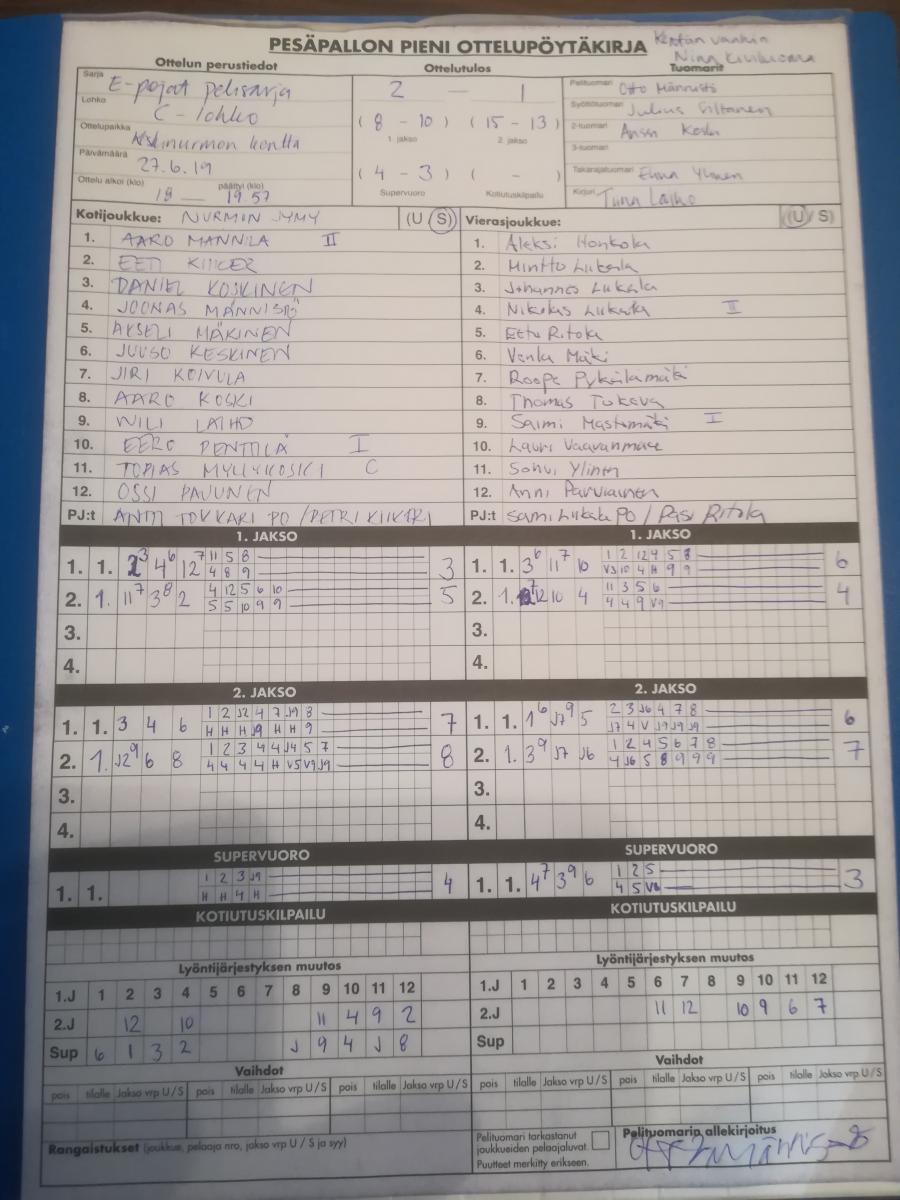 PESÄPALLON PIENI OTTELUPÖYTÄKIRJA
Kentän vanhin
Niina
Ottelun perustiedot
Ottelutulos
Tuomarit
Sarja E-pojat pelisarja
Lohko C-lohko
Ottelupaikka kenttä
Päivämäärä 27.6.19
Ottelu alkoi (klo) 18 päättyi (klo) 19.57
2 — 1
( 8 - 10 ) ( 15 - 13 )
1. jakso 2. jakso
( 4 - 3 ) ( - )
Supervuoro Kotiutuskilpailu
Pelituomari Otto Männistö
Syöttötuomari Julius Siltanen
2-tuomari Anssi Koski
3-tuomari
Takarajatuomari Elina Ylinen
Kirjuri Tiina Laiho
Kotijoukkue: NURMON JYMY (U S)
1. AARO MANNILA II
2. EETI
3. DANIEL KOSKINEN
4. JOONAS MÄNNISTÖ
5. AKSELI MÄKINEN
6. JUUSO KESKINEN
7. JIRI KOIVULA
8. AARO KOSKI
9. WILI LAIHO
10. EERO PENTTILÄ I
11. TOPIAS MYLLYKOSKI C
12. OSSI PAJUNEN
PJ:t ANTTI TOKKARI PO / PETRI
Vierasjoukkue: (U / S)
1. Aleksi Honkola
2. Minttu Liikala
3. Johannes Liikala
4. Nikolas Liikala II
5. Eetu Ritola
6. Venla Mäki
7. Roope Pykälämäki
8. Thomas Tukeva
9. Saimi Mastomäki I
10. Lauri
11. Sohvi Ylinen
12. Anni Parviainen
PJ:t Sami Liikala PO / Pasi Ritola
1. JAKSO
1. JAKSO
1. 1. 4⁶ 12⁷ 11 5 8 3
4 8 9
2. 1. 11⁷ 3⁸ 2 4 12 5 6 10 5
5 5 10 9 9
3.
4.
1. 1. 3⁶ 11⁷ 10 1 2 12 4 5 8 6
V3 10 4 H 9 9
2. 1. 12 10 4 11 3 5 6 4
4 4 9 V9
3.
4.
2. JAKSO
2. JAKSO
1. 1. 3 4 6 1 2 J2 4 7 J9 8 7
H H H J9 H H 9
2. 1. J2⁹ 6 8 1 2 3 4 4 J4 5 7 8
4 4 4 4 H V5 V9 J9
3.
4.
1. 1. 1⁶ J7⁹ 5 2 3 J6 4 7 8 6
J7 4 V J9 J9 J9
2. 1. 3⁹ J7 J6 1 2 4 5 6 7 8 7
4 J6 5 8 9 9 9
3.
4.
SUPERVUORO
SUPERVUORO
1. 1. 1 2 3 J9 4
H H 4 H
1. 1. 4⁷ 3⁹ 6 1 2 5 3
4 5 V6
KOTIUTUSKILPAILU
KOTIUTUSKILPAILU
Lyöntijärjestyksen muutos
1.J 1 2 3 4 5 6 7 8 9 10 11 12
2.J 12 10 11 4 9 2
Sup 6 1 3 2 J 9 4 J 8
Lyöntijärjestyksen muutos
1.J 1 2 3 4 5 6 7 8 9 10 11 12
2.J 11 12 10 9 6 7
Sup
Vaihdot
pois tilalle Jakso vrp U / S pois tilalle Jakso vrp U / S pois tilalle Jakso vrp U / S
Vaihdot
pois tilalle Jakso vrp U / S pois tilalle Jakso vrp U / S pois tilalle Jakso vrp U / S
Rangaistukset (joukkue, pelaaja nro, jakso vrp U / S ja syy)
Pelituomari tarkastanut
joukkueiden pelaajaluvat.
Puutteet merkitty erikseen.
Pelituomarin allekirjoitus